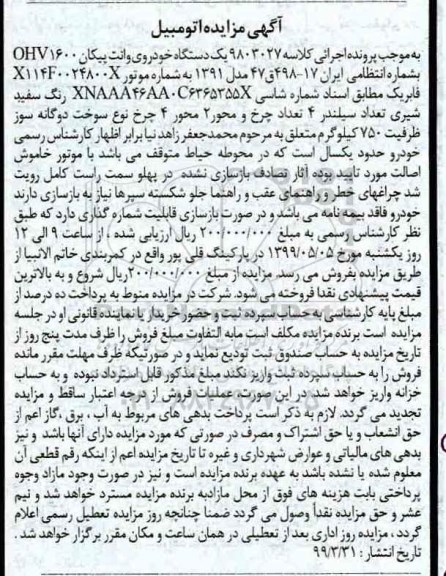 آگهی مزایده اتومبیل
به موجب پرونده اجرائی کلاسه ۹۸۰۳۰۲۷ یک دستگاه خودروی وانت پیکان OHV۱۶۰۰
بشماره انتظامی ایران ۱۷-۴۹۸ق۴۷ مدل ۱۳۹۱ به شماره موتور X۱۱۴F۰۰۲۴۸۰۰X
فابریک مطابق اسناد شماره شاسی XNAAA۴۶AA۰C۶۳۶۵۳۵۵X رنگ سفید
شیری تعداد سیلندر ۴ تعداد چرخ و محور۲ محور ۴ چرخ نوع سوخت دوگانه سوز
ظرفیت ۷۵۰ کیلوگرم متعلق به مرحوم محمدجعفر زاهد نیا برابر اظهار کارشناس رسمی
خودرو حدود یکسال است که در محوطه حیاط متوقف می باشد با موتور خاموش
اصالت مورد تایید بوده آثار تصادف بازسازی نشده در پهلو سمت راست کامل رویت
شد چراغهای خطر و راهنمای عقب و راهنما جلو شکسته سپرها نیاز به بازسازی دارند
خودرو فاقد بیمه نامه می باشد و در صورت بازسازی قابلیت شماره گذاری دارد که طبق
نظر کارشناس رسمی به مبلغ ۲۰۰/۰۰۰/۰۰۰ ریال ارزیابی شده ، از ساعت ۹ الی ۱۲
روز یکشنبه مورخ ۱۳۹۹/۰۵/۰۵ در پارکینگ قلی پور واقع در کمربندی خاتم الانبیا از
طریق مزایده بفروش می رسد. مزایده از مبلغ ۲۰۰/۰۰۰/۰۰۰ریال شروع و به بالاترین
قیمت پیشنهادی نقدا فروخته می شود. شرکت در مزایده منوط به پرداخت ده درصد از
مبلغ پایه کارشناسی به حساب سپرده ثبت و حضور خریدار یا نماینده قانونی او در جلسه
مزایده است برنده مزایده مکلف است مابه التفاوت مبلغ فروش را ظرف مدت پنج روز از
تاریخ مزایده به حساب صندوق ثبت تودیع نماید و در صورتیکه ظرف مهلت مقرر مانده
فروش را به حساب سپرده ثبت واریز نکند مبلغ مذکور قابل استرداد نبوده و به حساب
خزانه واریز خواهد شد. در این صورت عملیات فروش از درجه اعتبار ساقط و مزایده
تجدید می گردد. لازم به ذکر است پرداخت بدهی های مربوط به آب ، برق ،گاز اعم از
حق انشعاب و یا حق اشتراک و مصرف در صورتی که مورد مزایده دارای آنها باشد و نیز
بدهی های مالیاتی و عوارض شهرداری و غیره تا تاریخ مزایده اعم از اینکه رقم قطعی آن
معلوم شده یا نشده باشد به عهده برنده مزایده است و نیز در صورت وجود مازاد وجوه
پرداختی بابت هزینه های فوق از محل مازادبه برنده مزایده مسترد خواهد شد و نیم
عشر و حق مزایده نقداً وصول می گردد ضمنا چنانچه روز مزایده تعطیل رسمی اعلام
گردد ، مزایده روز اداری بعد از تعطیلی در همان ساعت و مکان مقرر برگزار خواهد شد .
تاریخ انتشار : ۹۹/۳/۳۱